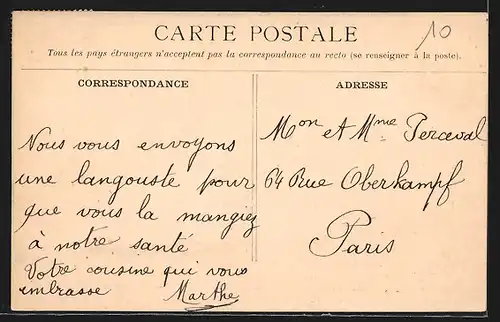 CARTE POSTALE
10
Tous les pays étrangers n'acceptent pas la correspondance au recto (se renseigner à la poste).
CORRESPONDANCE
Nous vous envoyons
une langouste pour
que vous la mangiez
à notre santé
Votre cousine qui vous
embrasse Marthe
ADRESSE
Mon et Mme Perceval
64 Rue Oberkampf
Paris